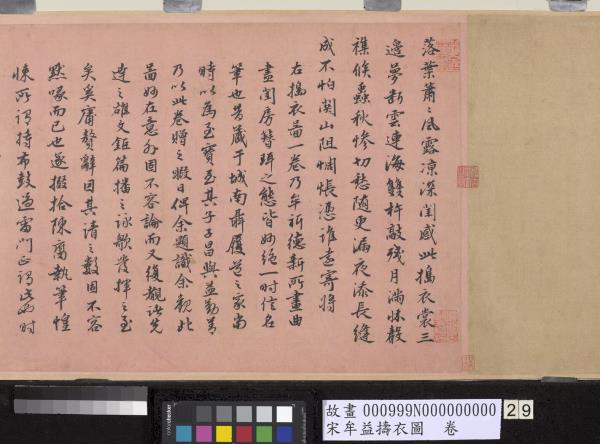 落葉蕭〻風露凉深閨感此搗衣裳三
邊夢斷雲連海雙杵敲殘月滿牀穀
襍候蟲秋慘切愁随更漏夜添長縫
成不怕関山阻惆悵憑誰遠寄将
右搗衣啚一卷乃牟祈德新所畫曲
盡閨房簪珥之態皆妙絶一時信名
筆也昔藏于城南聶履道之家尚
時以為至寶至其子子昌與益勤善
乃以此卷贈之暇日俾余題識余觀此
啚妙在意外固不容論而又復觀諸先
達之雄文鉅篇播之詠歌發揮之至
矣奚庸贅辭因其請之數固不容
黙喙而已也遂掇拾陳腐執筆惶
悚所謂持布鼓過雷門正謂此也時
故畫 000999N000000000 29
宋牟益擣衣圖 卷